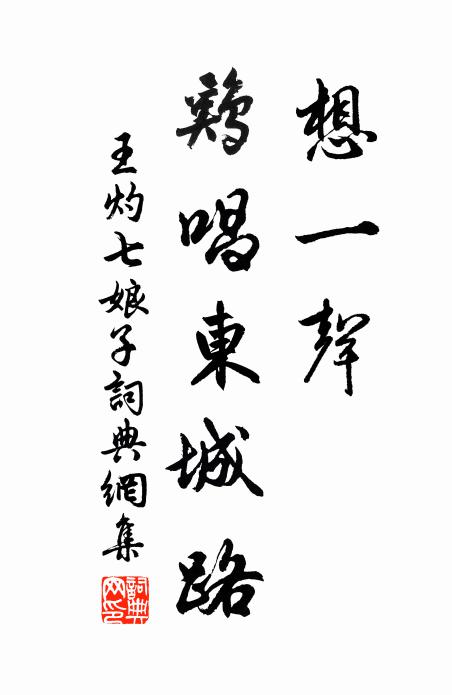 想一聲
鷄唱東城路
王灼七娘子詞典網集
詞典网印